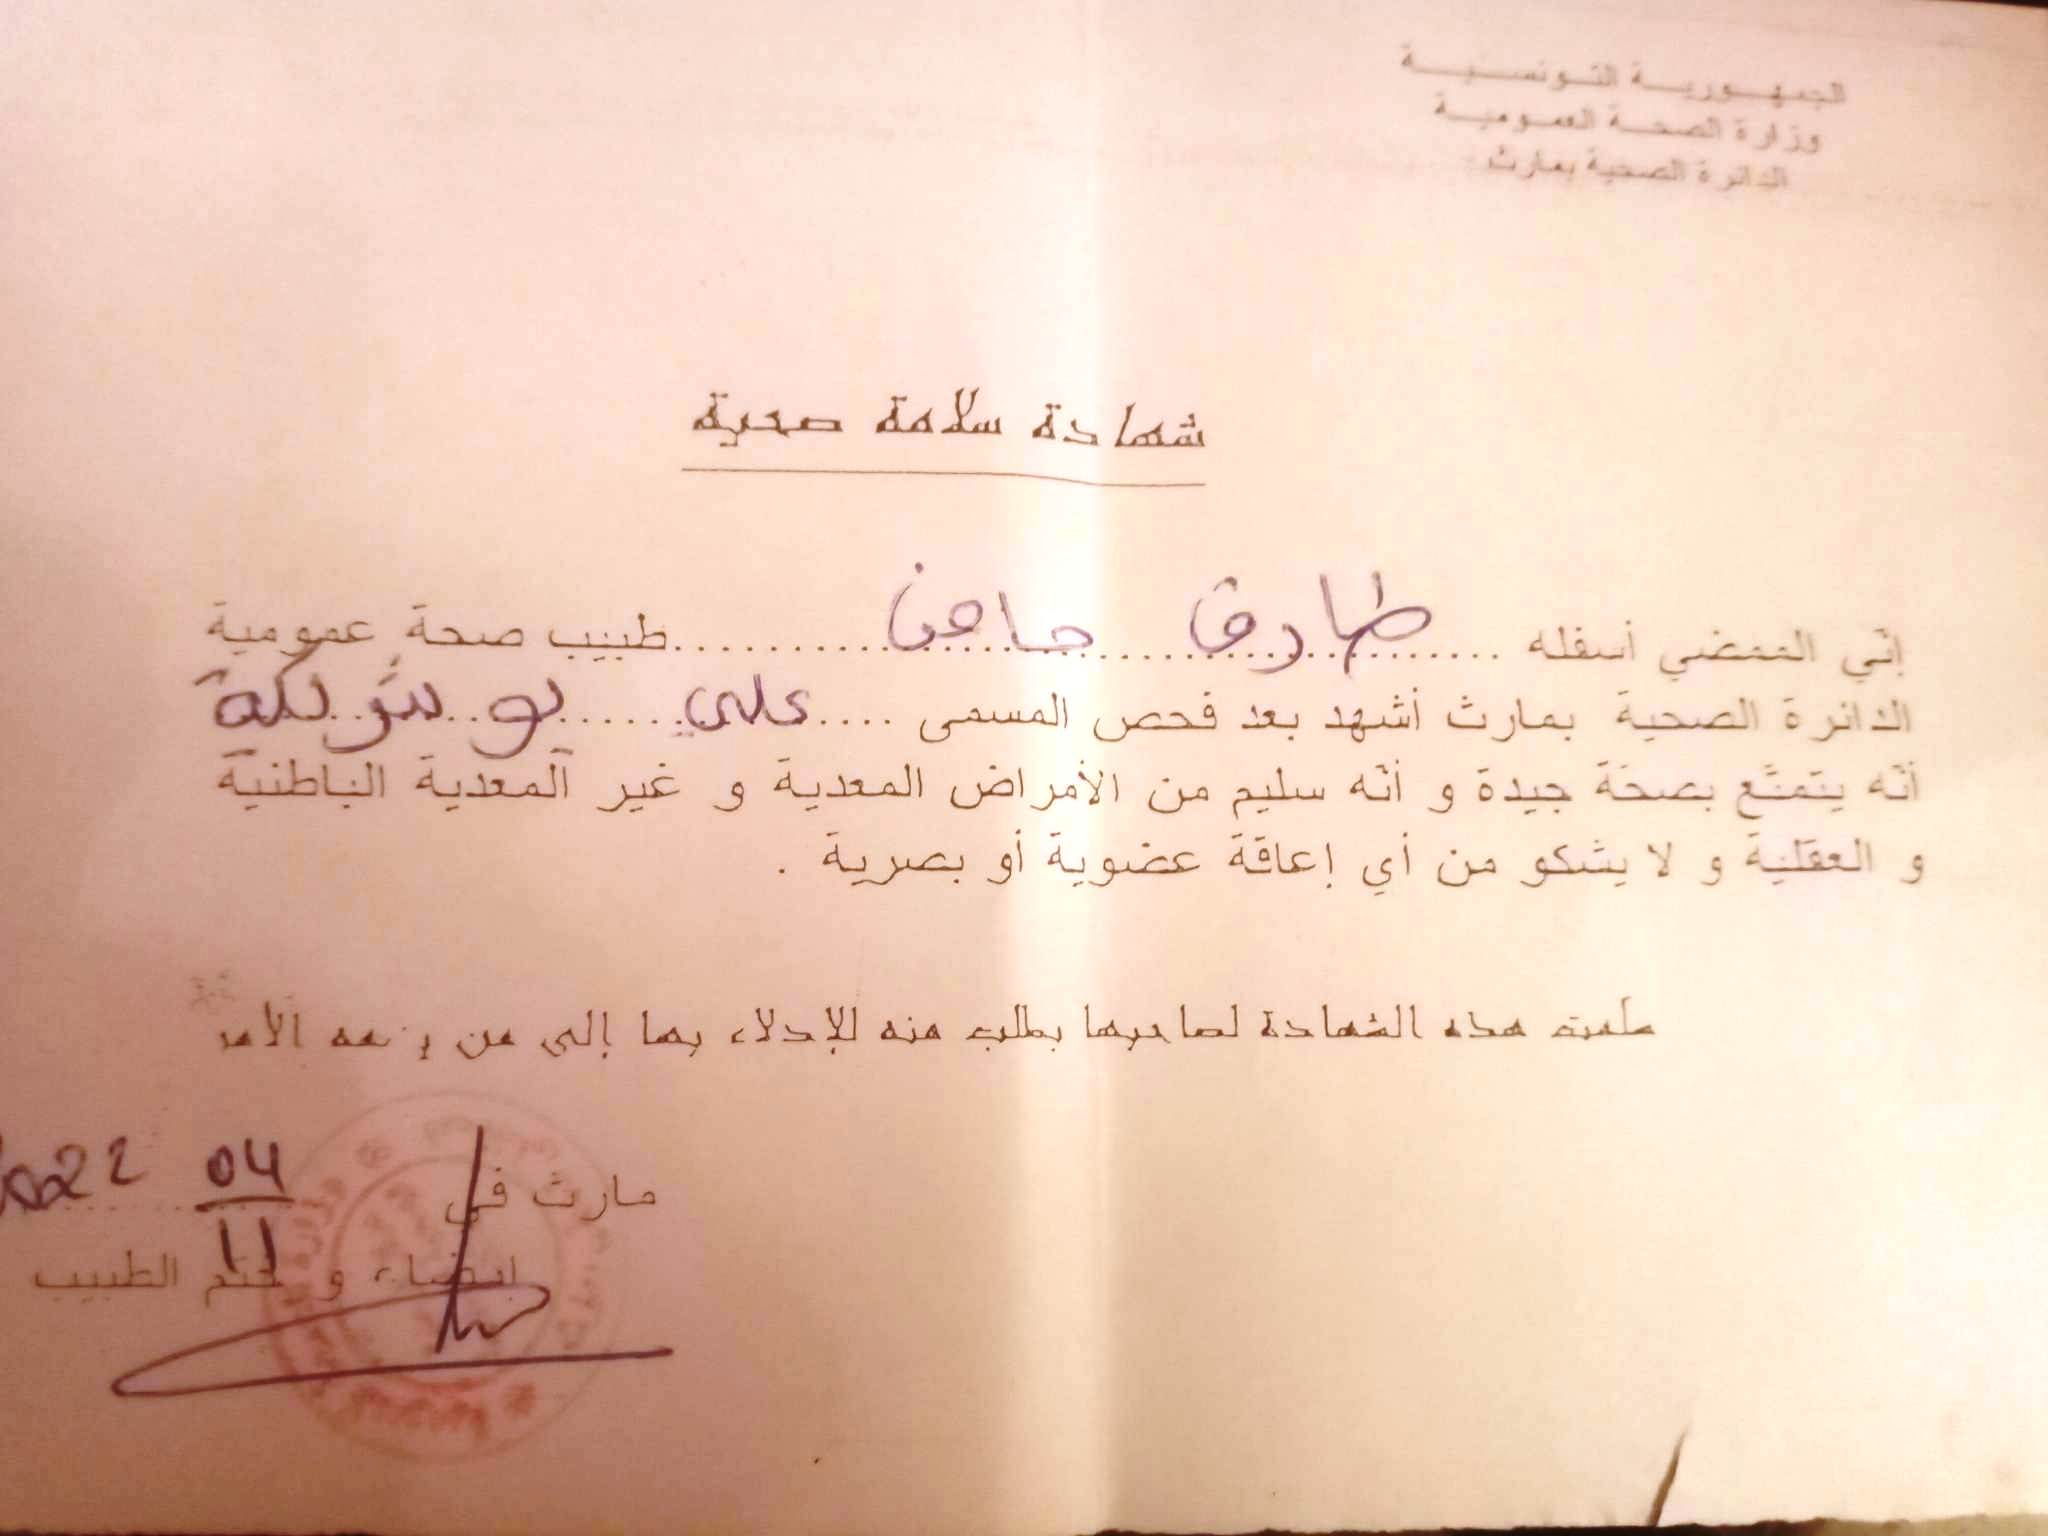 الجمهورية التونسية
وزارة الصحة العمومية
الدائرة الصحية بمارث
شهادة سلامة صحية
إنّي الممضي أسفله ........ طارق ........ طبيب صحة عمومية
الدائرة الصحية بمارث أشهد بعد فحص المسمى .... علي بوشريكة
أنّه يتمتّع بصحّة جيدة و أنّه سليم من الأمراض المعدية و غير المعدية الباطنية
و العقلية و لا يشكو من أي إعاقة عضوية أو بصرية .
سلمت هذه الشهادة لصاحبها بطلب منه للإدلاء بها إلى من يهمه الأمر
مارث في 04/11 2022
إمضاء و ختم الطبيب